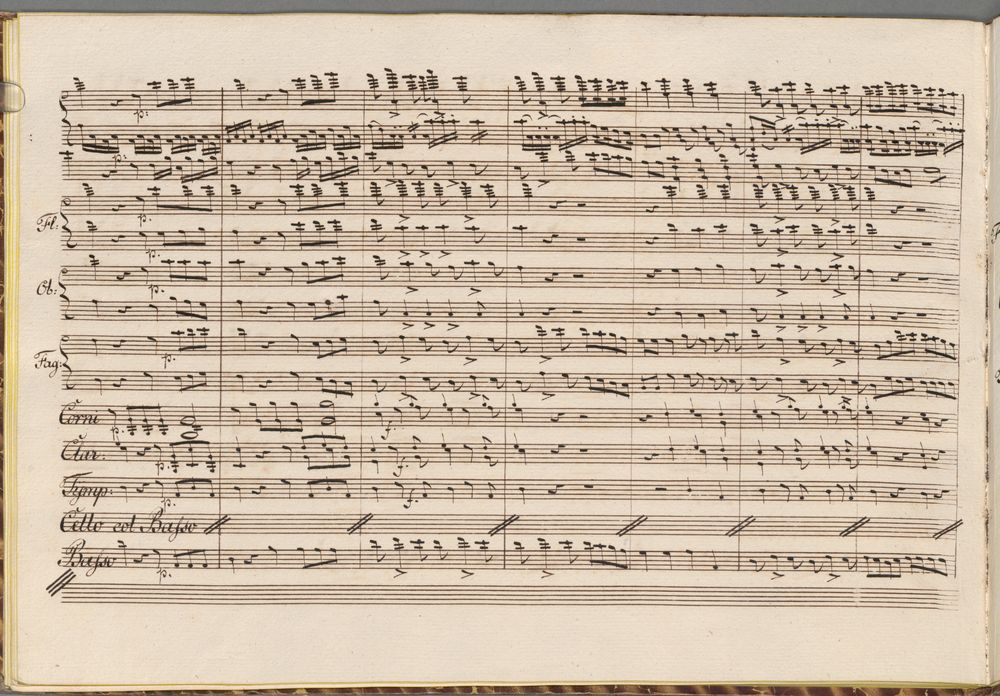 p.
p.
Fl:
p.
p.
Ob:
p.
Fag:
p.
Corni
p.
f.
Clar:
p.
f.
Tymp:
p.
f.
Cello col Basso
Basso
p.